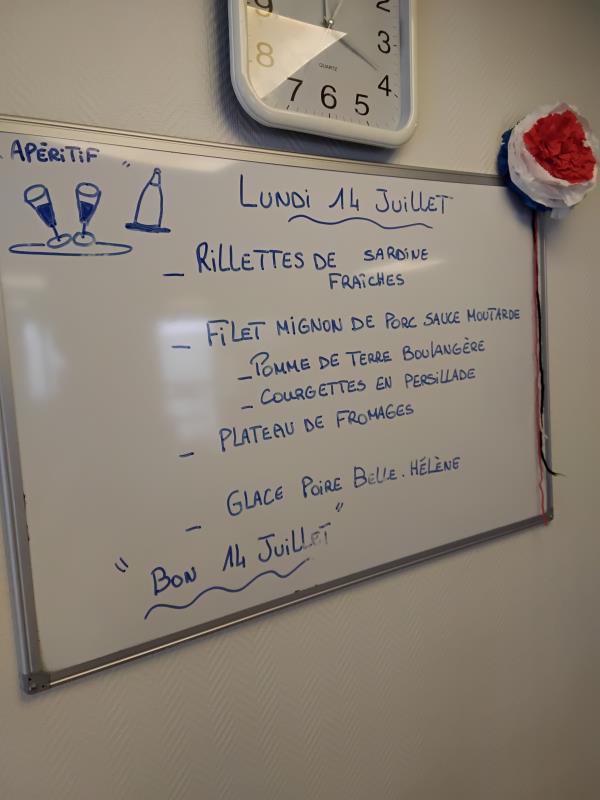 9
2
8
3
QUARTZ
4
7
6
5
APÉRITIF "
LUNDI 14 JUILLET
- RILLETTES DE SARDINE
FRAÎCHES
- FILET MIGNON DE PORC SAUCE MOUTARDE
- POMME DE TERRE BOULANGÈRE
- COURGETTES EN PERSILLADE
- PLATEAU DE FROMAGES
- GLACE POIRE BELLE.HÉLÈNE
" BON 14 JUILLET "